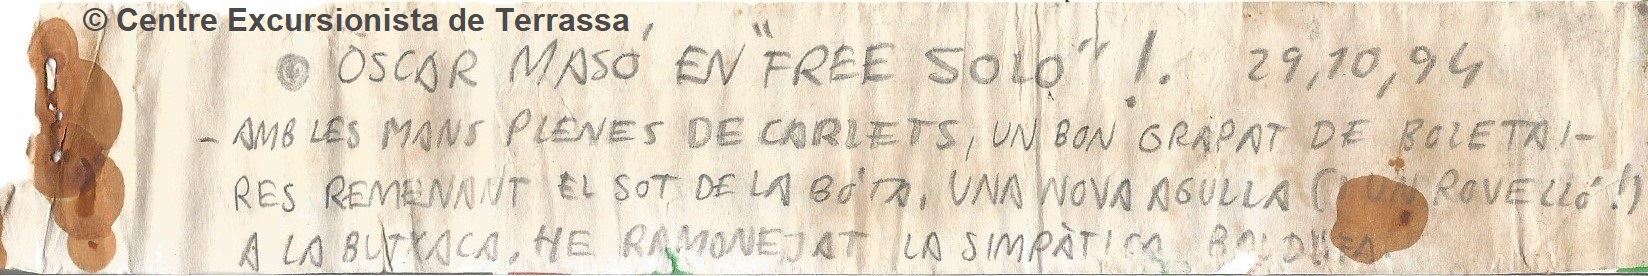 © Centre Excursionista de Terrassa
OSCAR MASÓ EN "FREE SOLO"!. 29,10,94
- AMB LES MANS PLENES DE CARLETS, UN BON GRAPAT DE BOLETAI-
RES REMENANT EL SOT DE LA BÓTA, UNA NOVA AGULLA (I UN ROVELLÓ!)
A LA BUTXACA, HE RAMONEJAT LA SIMPÀTICA BALDUFA